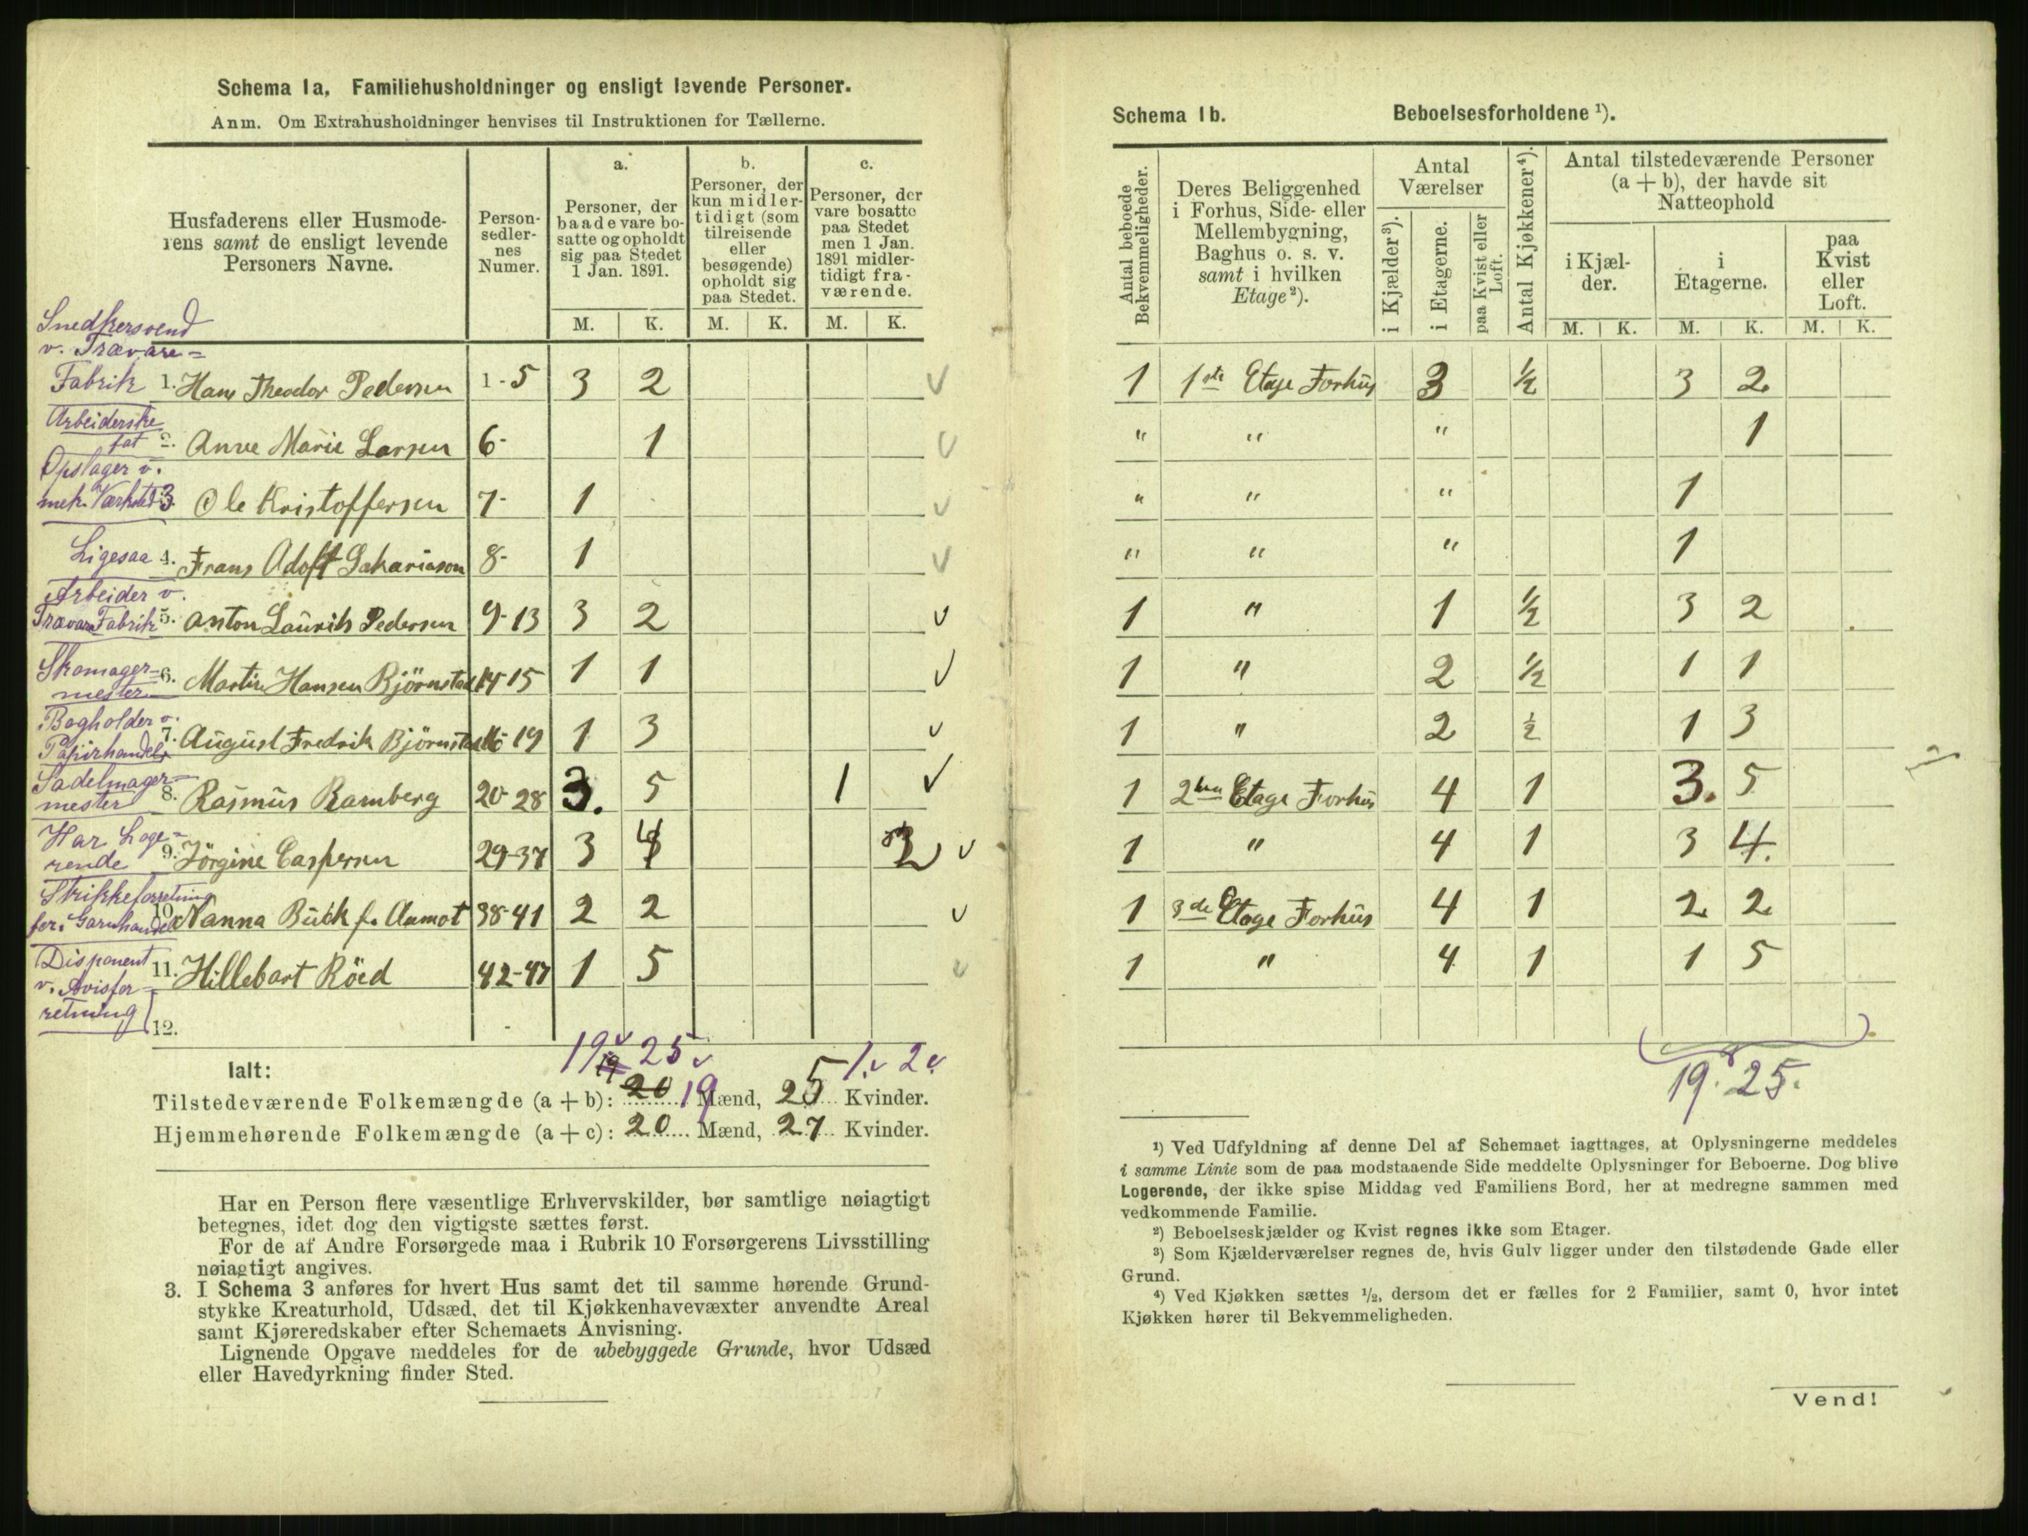 Schema 1a. Familiehusholdninger og ensligt levende Personer.
Anm. Om Extrahusholdninger henvises til Instruktionen for Tællerne.
Husfaderens eller Husmoderens samt de ensligt levende Personers Navne.
Personsedlernes Numer.
a. Personer, der baade vare bosatte og opholdt sig paa Stedet 1 Jan. 1891.
b. Personer, der kun midlertidigt (som tilreisende eller besøgende) opholdt sig paa Stedet.
c. Personer, der vare bosatte paa Stedet men 1 Jan. 1891 midlertidigt fraværende.
M. K. M. K. M. K.
Snedkersvend v. Trævare=Fabrik 1. Hans Theodor Pedersen 1-5 3 2
Arbeiderske 2. Anne Marie Larsen 6- 1
Opslager v. mek. Værksted 3. Ole Kristoffersen 7- 1
Ligesaa 4. Frans Adolf Sakariason 8- 1
Arbeider v. TrævareFabrik 5. Anton Laurits Pedersen 9-13 3 2
Skomager=mester 6. Martin Hansen Bjørnstad 14-15 1 1
Bogholder v. Papirhandel 7. August Fredrik Bjørnstad 16-19 1 3
Sadelmager=mester 8. Rasmus Ramberg 20-28 3. 5 1
Har Loge=rende 9. Jörgine Caspersen 29-37 3 4 2
Strikkeforretning for Garnhandel 10. Nanna Buck f. Aamot 38-41 2 2
Disponent v. Avisfor=retning 11. Hillebart Röed 42-47 1 5
12.
19 25 1. 2
Ialt:
Tilstedeværende Folkemængde (a + b): 20 19 Mænd, 25 Kvinder.
Hjemmehørende Folkemængde (a + c): 20 Mænd, 27 Kvinder.
Har en Person flere væsentlige Erhvervskilder, bør samtlige nøiagtigt
betegnes, idet dog den vigtigste sættes først.
For de af Andre Forsørgede maa i Rubrik 10 Forsørgerens Livsstilling
nøiagtigt angives.
3. I Schema 3 anføres for hvert Hus samt det til samme hørende Grund-
stykke Kreaturhold, Udsæd, det til Kjøkkenhavevæxter anvendte Areal
samt Kjøreredskaber efter Schemaets Anvisning.
Lignende Opgave meddeles for de ubebyggede Grunde, hvor Udsæd
eller Havedyrkning finder Sted.
Schema 1b. Beboelsesforholdene ¹).
Antal beboede Bekvemmeligheder.
Deres Beliggenhed i Forhus, Side- eller Mellembygning, Baghus o. s. v. samt i hvilken Etage ²).
Antal Værelser
i Kjælder ³). i Etagerne. paa Kvist eller Loft.
Antal Kjøkkener ⁴).
Antal tilstedeværende Personer (a + b), der havde sit Natteophold
i Kjælder. i Etagerne. paa Kvist eller Loft.
M. K. M. K. M. K.
1 1ste Etage Forhus 3 ½ 3 2
" " " 1
" " " 1
" " " 1
1 " 1 ½ 3 2
1 " 2 ½ 1 1
1 " 2 ½ 1 3
1 2den Etage Forhus 4 1 3. 5
1 " 4 1 3 4.
1 3de Etage Forhus 4 1 2 2
1 " 4 1 1 5
19. 25.
¹) Ved Udfyldning af denne Del af Schemaet iagttages, at Oplysningerne meddeles
i samme Linie som de paa modstaaende Side meddelte Oplysninger for Beboerne. Dog blive
Logerende, der ikke spise Middag ved Familiens Bord, her at medregne sammen med
vedkommende Familie.
²) Beboelseskjælder og Kvist regnes ikke som Etager.
³) Som Kjælderværelser regnes de, hvis Gulv ligger under den tilstødende Gade eller
Grund.
⁴) Ved Kjøkken sættes ½, dersom det er fælles for 2 Familier, samt 0, hvor intet
Kjøkken hører til Bekvemmeligheden.
Vend!